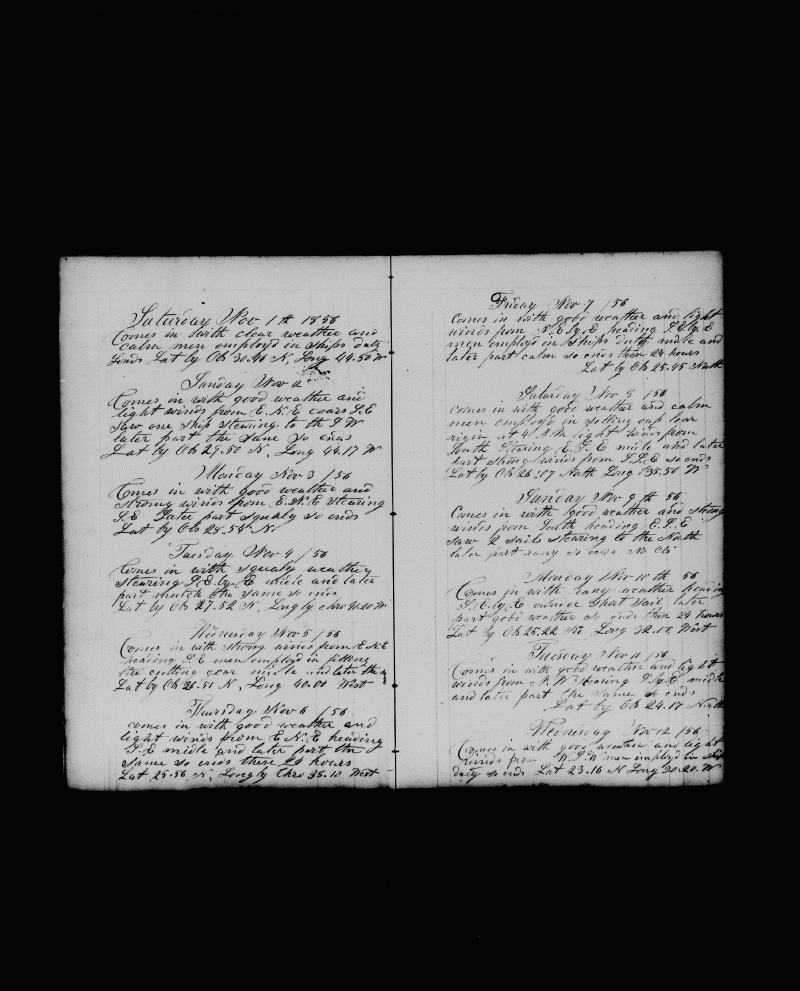 Saturday Nov 1th 1856
Comes in with clear weather and
calm men employd in ships duty
Ends Lat by Ob 30.46 N, Long 44.50 W
Sunday Nov 2
Comes in with good weather and
light winds from E. N. E cours S.E
Saw one ship stearing to the S W
later part the same so ends
Lat by Ob 29.50 N, Long 43.17 W
Monday Nov 3 /56
Comes in with good weather and
strong winds from E.N.E stearing
S.E Later part squaly so ends
Lat by Ob 28.54 N.
Tuesday Nov 4 /56
Comes in with squaly weather
stearing S.E. by E midle and later
part much the same so ends
Lat by Ob 27.52 N, Long by chro 41.20 W
Wednesday Nov 5 /56
Comes in with strong winds from E N.E
heading S.E men employd in fitting
the cutting gear midle and later the
Lat by Ob 26.51 N, Long 40.00 West
Thursday Nov 6 /56
comes in with good weather and
light winds from E N. E heading
S.E midle and later part the
same so ends these 24 hours
Lat 25.56 N, Long by Chro 38.18 West
Friday Nov 7 /56
Comes in with good weather and light
winds from N.E. by E heading S.E. by E
men employd in Ships duty midle and
later part calm so ends these 24 hours
Lat by Ob 25.45 North
Saturday Nov 8 /56
Comes in with good weather and calm
men employd in setting up
at 4 P.M light winds from
South Stearing E.S.E midle and later
part strong winds from S.S.E so ends
Lat by Ob 26.07 North Long 35.50 W
Sunday Nov 9th 56
Comes in with good weather and strong
winds from South heading E.S.E
Saw 2 sails stearing to the North
later part so ends No Ob
Monday Nov 10th 56
Comes in with weather heading
S.E. by E under Short Sail later
part good weather so ends these 24 hours
Lat by Ob 25.22 No Long 32.12 West
Tuesday Nov 11 /56
Comes in with good weather and light
winds from N.W Stearing S. by E midle
and later part the same so ends
Lat by Ob 24.17 North
Wednesday Nov 12 /56
Comes in with good weather and light
winds from W.S.W men employd in ship
duty so ends Lat 23.16 N Long 30.20. W